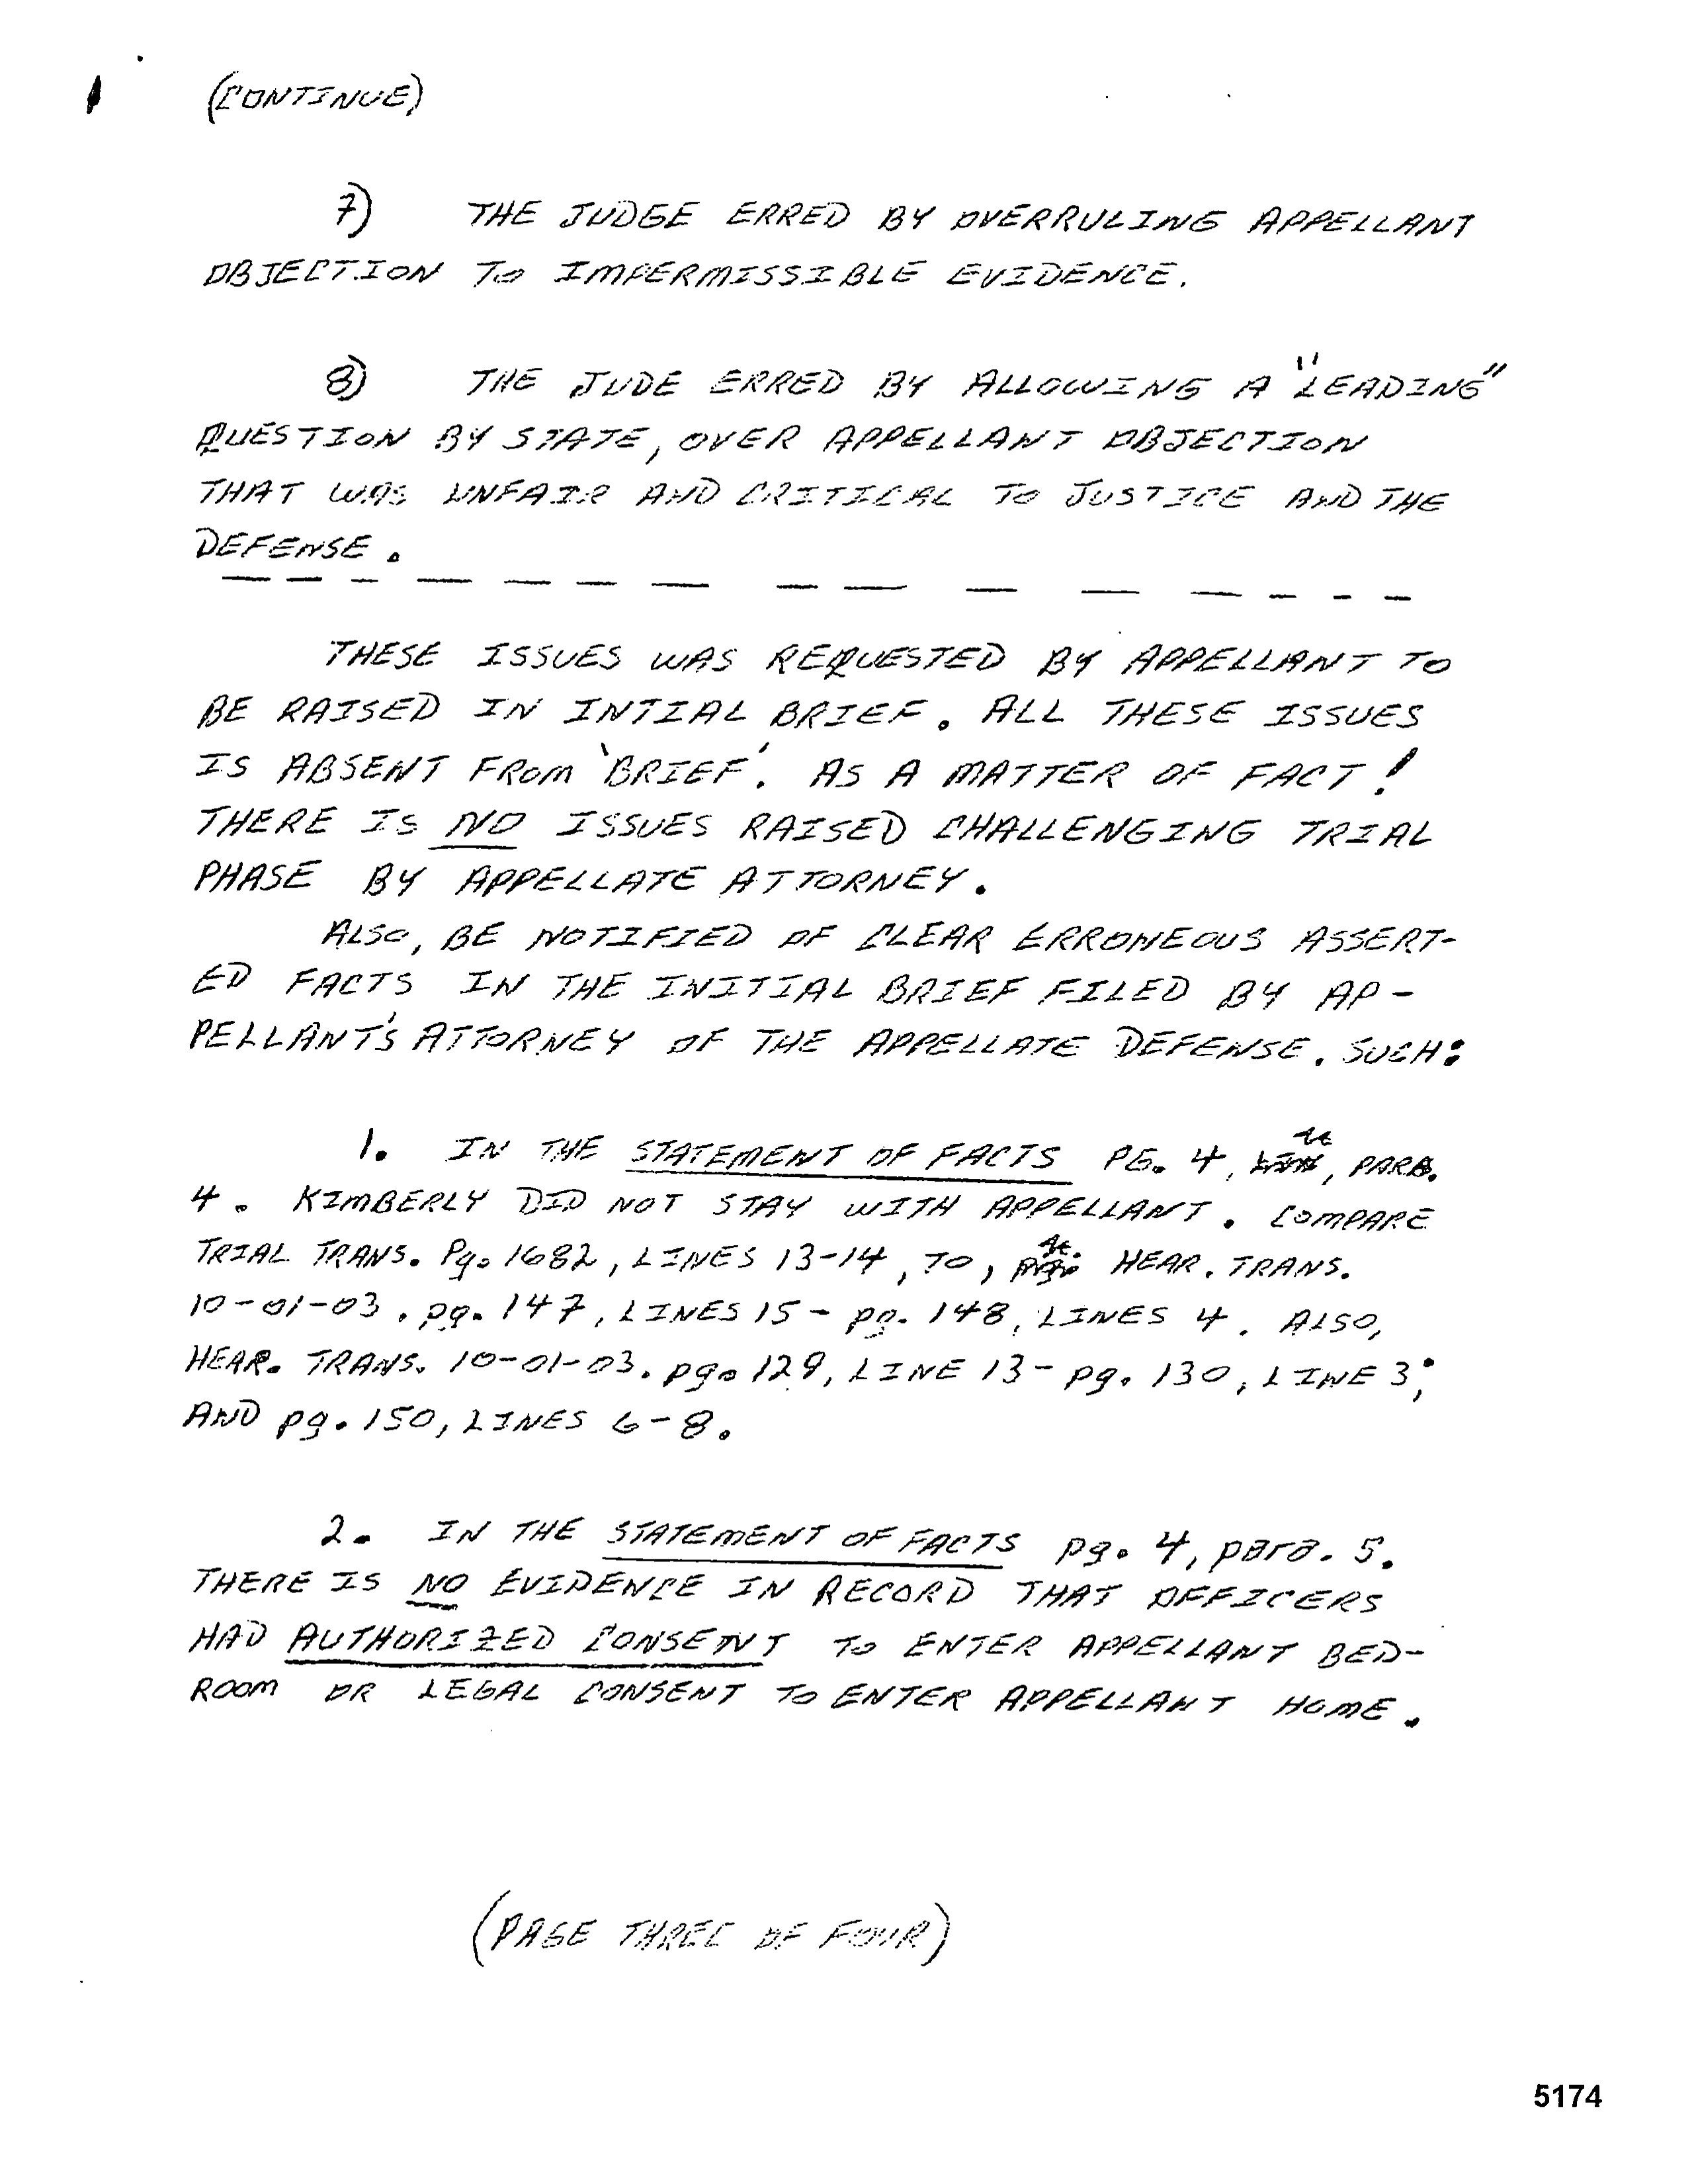 (CONTINUE)
7) THE JUDGE ERRED BY OVERRULING APPELLANT
OBJECTION TO IMPERMISSIBLE EVIDENCE.
8) THE JUDE ERRED BY ALLOWING A "LEADING"
QUESTION BY STATE, OVER APPELLANT OBJECTION
THAT WAS UNFAIR AND CRITICAL TO JUSTICE AND THE
DEFENSE.
THESE ISSUES WAS REQUESTED BY APPELLANT TO
BE RAISED IN INTIAL BRIEF. ALL THESE ISSUES
IS ABSENT FROM 'BRIEF'. AS A MATTER OF FACT!
THERE IS NO ISSUES RAISED CHALLENGING TRIAL
PHASE BY APPELLATE ATTORNEY.
ALSO, BE NOTIFIED OF CLEAR ERRONEOUS ASSERT-
ED FACTS IN THE INITIAL BRIEF FILED BY AP-
PELLANT'S ATTORNEY OF THE APPELLATE DEFENSE. SUCH:
1. IN THE STATEMENT OF FACTS PG. 4, , PARA.
4. KIMBERLY DID NOT STAY WITH APPELLANT. COMPARE
TRIAL TRANS. Pg. 1682, LINES 13-14, TO, HEAR. TRANS.
10-01-03. pg. 147, LINES 15 - pg. 148, LINES 4. ALSO,
HEAR. TRANS. 10-01-03. pg. 129, LINE 13 - pg. 130, LINE 3;
AND pg. 150, LINES 6-8.
2. IN THE STATEMENT OF FACTS pg. 4, para. 5.
THERE IS NO EVIDENCE IN RECORD THAT OFFICERS
HAD AUTHORIZED CONSENT TO ENTER APPELLANT BED-
ROOM OR LEGAL CONSENT TO ENTER APPELLANT HOME.
(PAGE THREE OF FOUR)
5174